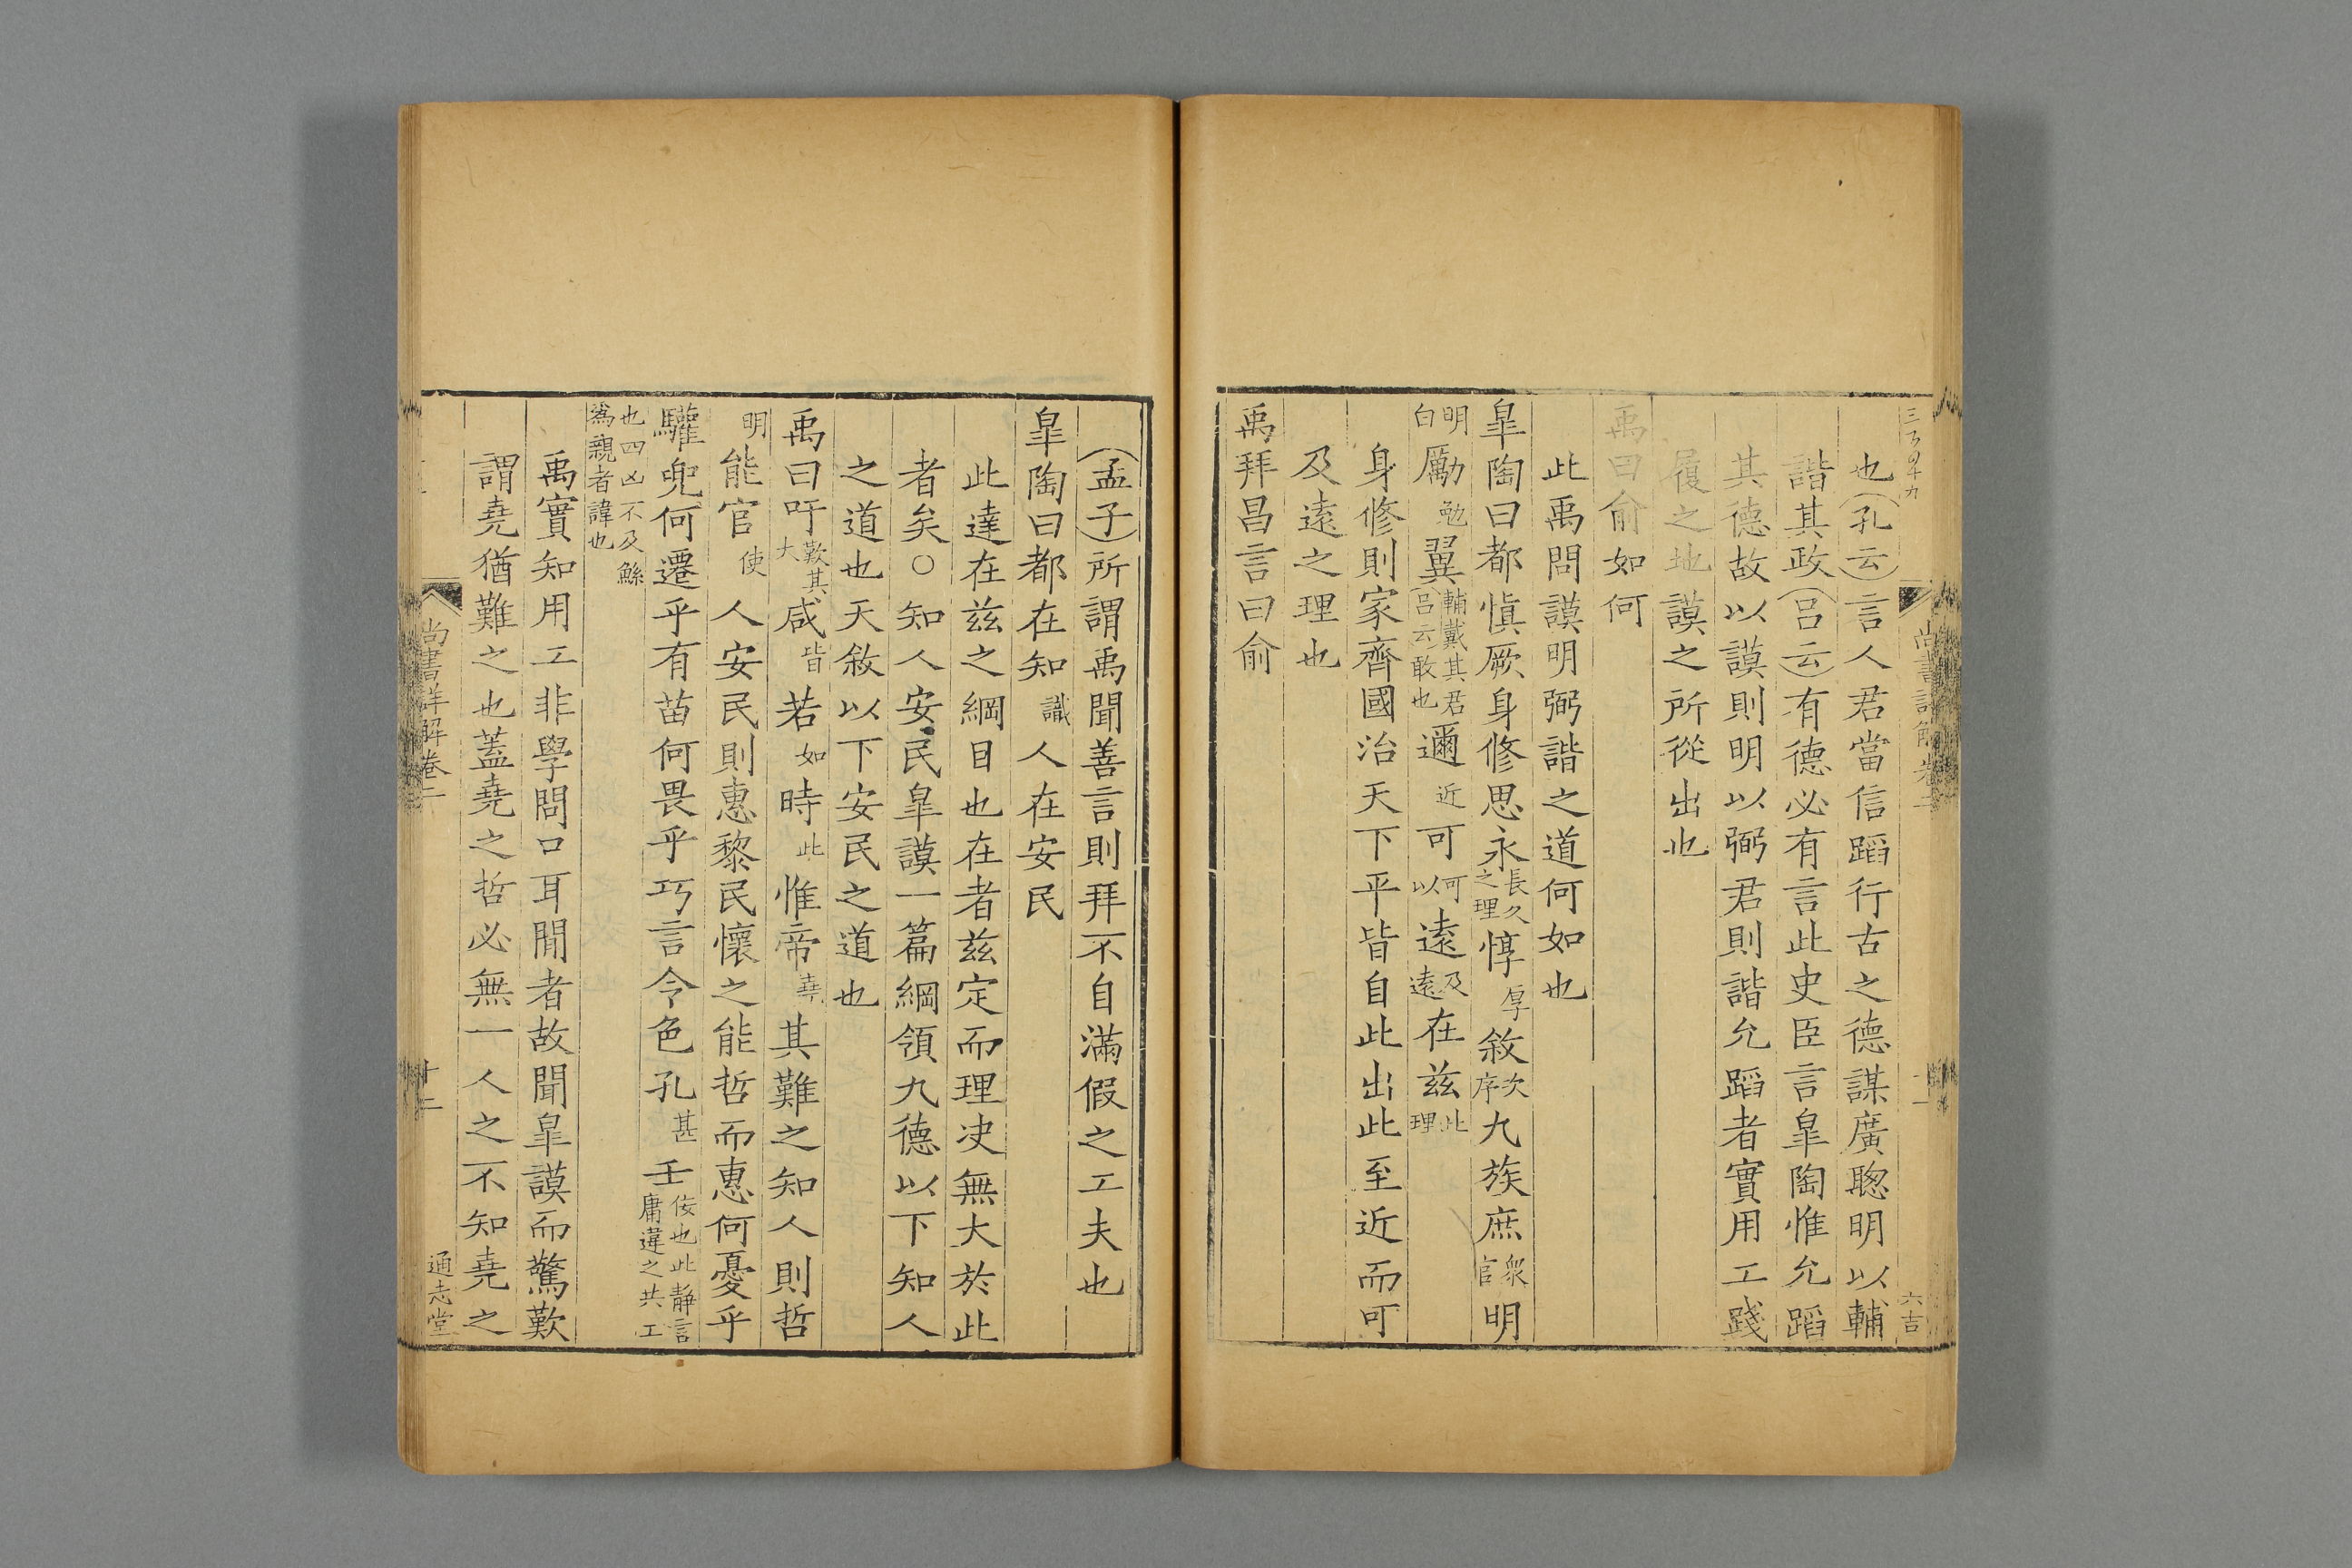 也孔云言人君當信蹈行古之德謀廣聦明以輔
諧其政呂云有德必有言此史臣言皐陶惟允蹈
其德故以謨則明以弼君則諧允蹈者實用工踐
履之地謨之所從出也
禹曰俞如何
此禹問謨明弼諧之道何如也
皐陶曰都愼厥身修思永長久之理惇厚敘次序九族庶衆官明
明白勵勉翼輔戴其君呂云敢也邇近可可以遠及遠在兹此理
身修則家齊國治天下平皆自此出此至近而可
及遠之理也
禹拜昌言曰俞
孟子所謂禹聞善言則拜不自滿假之工夫也
皐陶曰都在知識人在安民
此達在兹之綱目也在者兹定而理决無大於此
者矣○知人安民皐謨一篇綱領九德以下知人
之道也天敘以下安民之道也
禹曰吁歎其大咸皆若如時此惟帝堯其難之知人則哲
明能官使人安民則惠黎民懷之能哲而惠何憂乎
驩兜何遷乎有苗何畏乎巧言令色孔甚壬佞也此静言庸違之共工
也四凶不及鯀為親者諱也
禹實知用工非學問口耳閒者故聞皐謨而驚歎
謂堯猶難之也蓋堯之哲必無一人之不知堯之
尚書詳解卷二
十二
通志堂